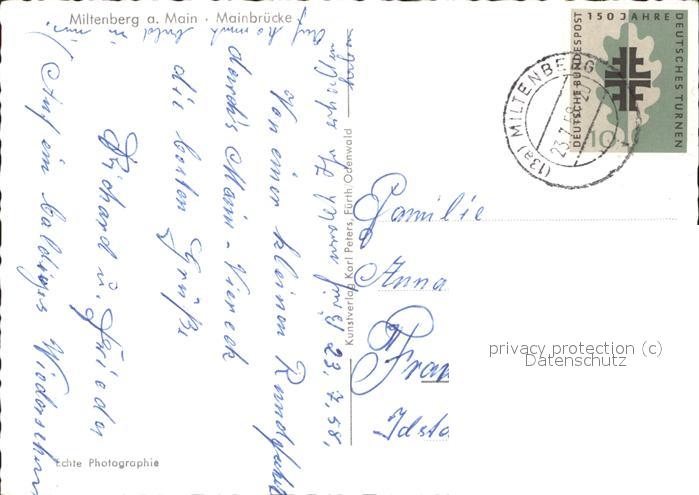 Miltenberg a. Main · Mainbrücke
150 JAHRE
DEUTSCHES TURNEN
DEUTSCHE BUNDESPOST
10
(13a) MILTENBERG
23.7.58
Kunstverlag Karl Peters, Fürth Odenwald
23. 7. 58.
Von einer kleinen Rundfahrt
durch's Main-Viereck
die besten Grüße
Richard u. Frieder
Auf ein baldiges Wiedersehn
Familie
Anna
Fran
Idste
privacy protection (c)
Datenschutz
Echte Photographie